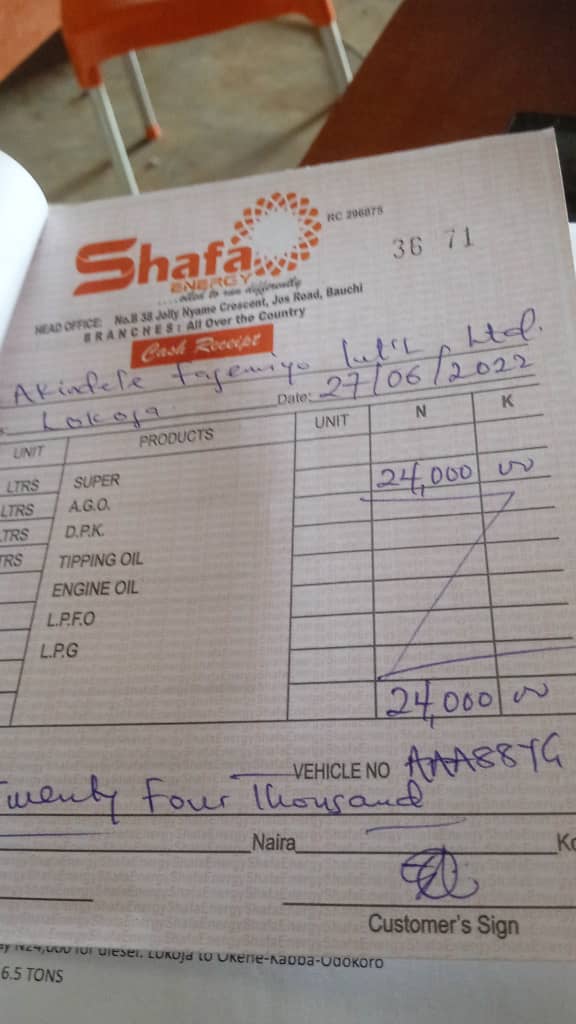 Shafa
ENERGY
RC 296875
36 71
HEAD OFFICE: No.B 38 Jolly Nyame Crescent, Jos Road, Bauchi
BRANCHES: All Over the Country
Cash Receipt
Akindele Int'l Ltd.
Lokoja Date: 27/06/2022
UNIT PRODUCTS UNIT N K
LTRS SUPER 24,000 00
LTRS A.G.O.
LTRS D.P.K.
TRS TIPPING OIL
ENGINE OIL
L.P.F.O
L.P.G
24,000 00
VEHICLE NO AAA88YG
Twenty Four Thousand
Naira
Customer's Sign
N24,000 for diesel. Lokoja to Okene-Kabba-Odokoro
6.5 TONS